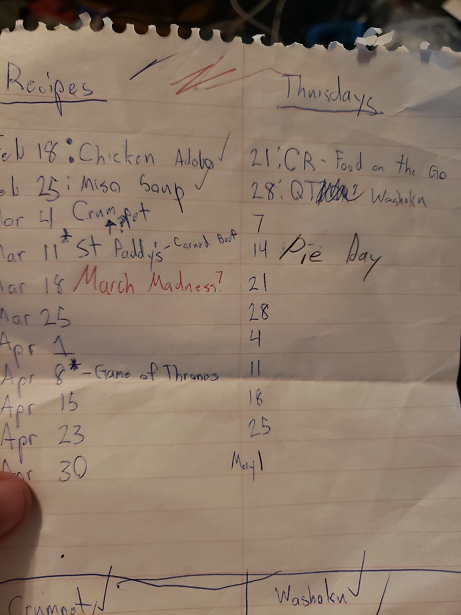 Recipes
Thursdays
eb 18: Chicken Adobo ✓
21: CR - Food on the Go
eb 25: Miso Soup ✓
28: QT Washoku
ar 4 Crumpet
7
ar 11* St Paddy's - Corned Beef
14 Pie Day
ar 18 March Madness?
21
ar 25
28
Apr 1
4
Apr 8* - Game of Thrones
11
Apr 15
18
Apr 23
25
Apr 30
May 1
Crumpet ✓
Washoku ✓